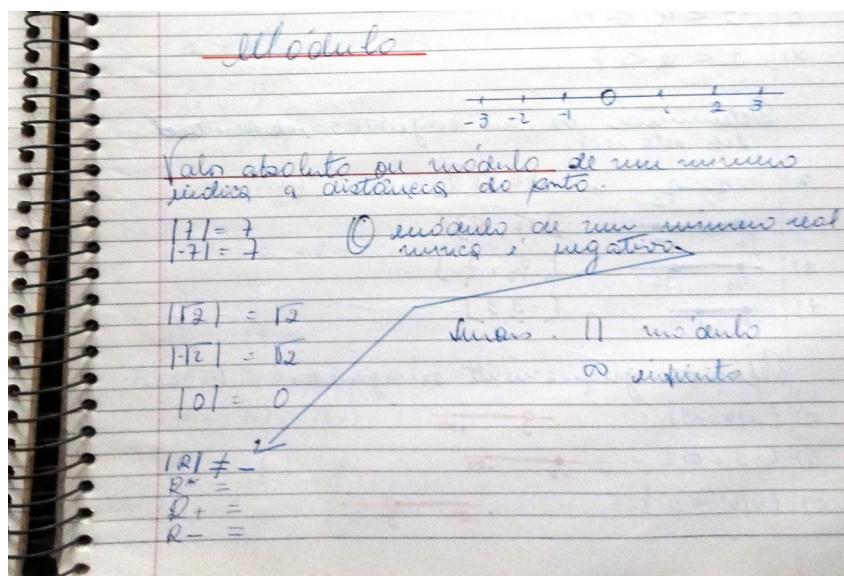 Módulo
-3 -2 -1 0 1 2 3
Valor absoluto ou módulo de um número
indica a distância do ponto.
|7| = 7
|-7| = 7
O módulo de um número real
nunca é negativo.
|√2| = √2
|-√2| = √2
Sinais: || módulo
∞ infinito
|0| = 0
|R| ≠ -
R* =
R+ =
R- =